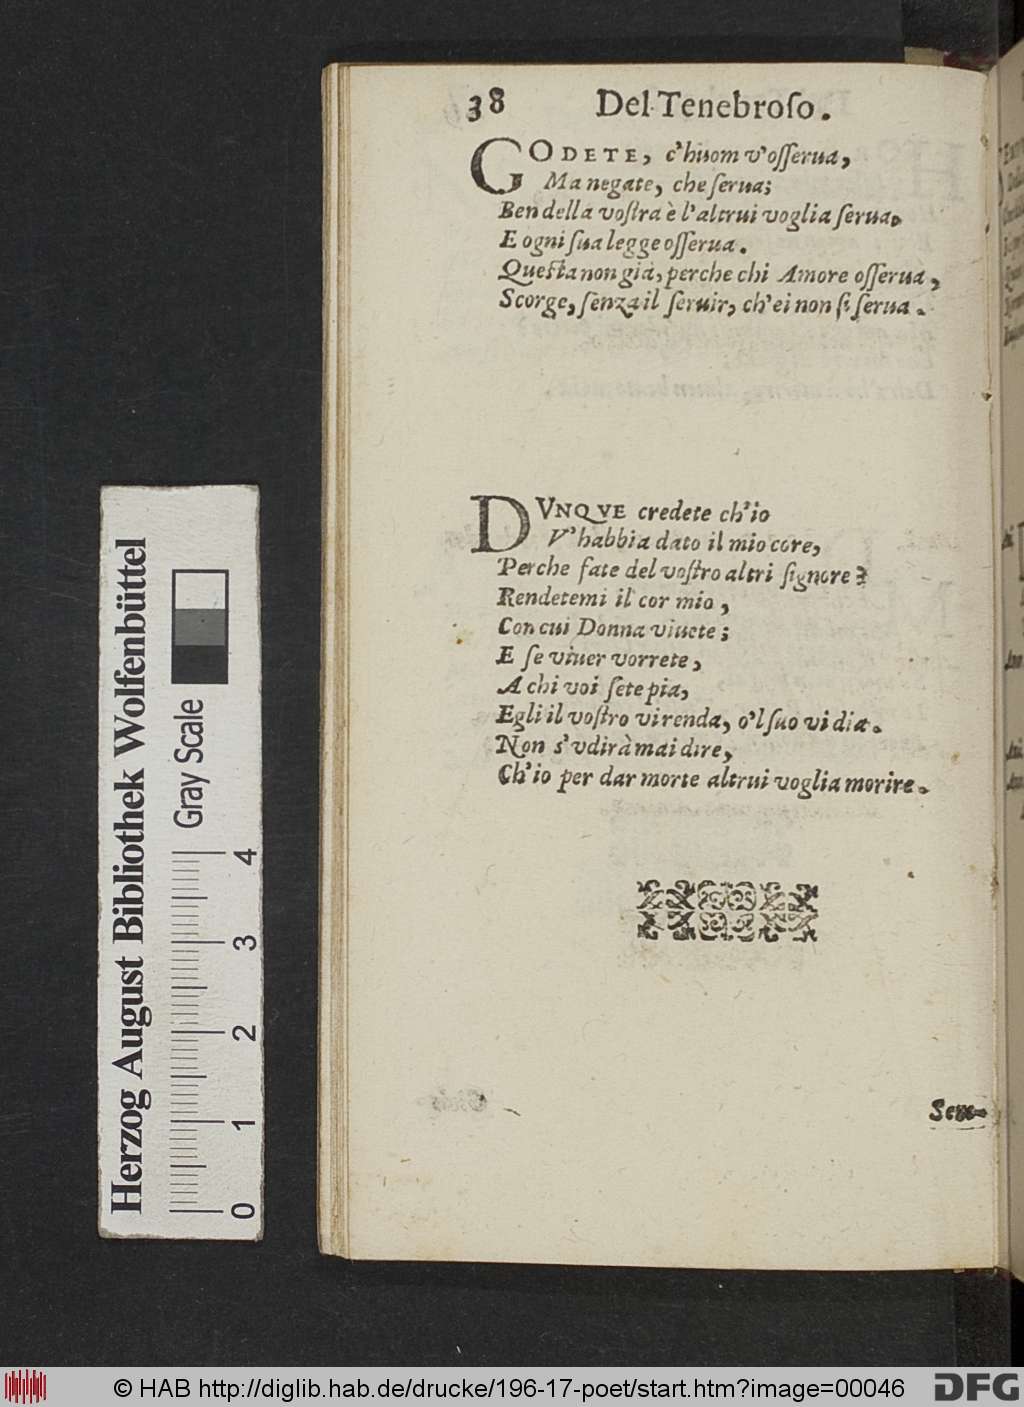 38 Del Tenebroſo.
GODETE, c'huom v'oſſerua,
Ma negate, che ſerua;
Ben della voſtra è l'altrui voglia ſerua.
E ogni ſua legge oſſerua.
Queſta non già, perche chi Amore oſſerua,
Scorge, ſenza il ſeruir, ch'ei non ſi ſerua.
DVNQVE credete ch'io
V'habbia dato il mio core,
Perche fate del voſtro altri ſignore?
Rendetemi il cor mio,
Con cui Donna viuete;
E ſe viuer vorrete,
A chi voi ſete pia,
Egli il voſtro vi renda, o'l ſuo vi dia.
Non s'vdirà mai dire,
Ch'io per dar morte altrui voglia morire.
Sem-
Herzog August Bibliothek Wolfenbüttel
Gray Scale
0 1 2 3 4
© HAB http://diglib.hab.de/drucke/196-17-poet/start.htm?image=00046
DFG